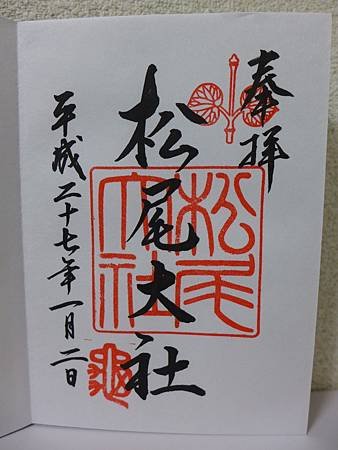 奉拝
松尾大社
平成二十七年一月二日
松尾大社